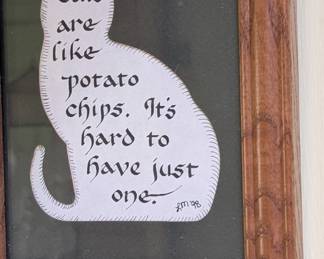 Cats
are
like
potato
chips. It's
hard to
have just
one.
LM '98